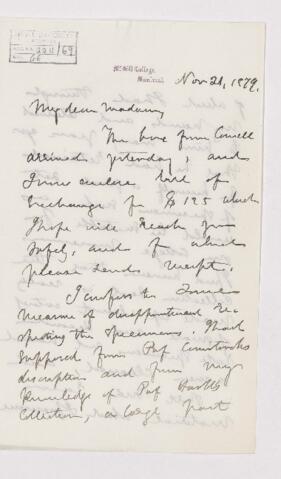 McGill College
Montreal
Nov 21, 1879.
My dear Madam,
The box from Cornell
arrived yesterday, and
I now enclose bill of
Exchange for $125 which
I hope will reach you
safely, and for which
please send receipt.
I confess to some
measure of disappointment re-
specting the specimens. I had
supposed from Prof Comstock's
description and from my
knowledge of Prof Hartt's
collection, a large part